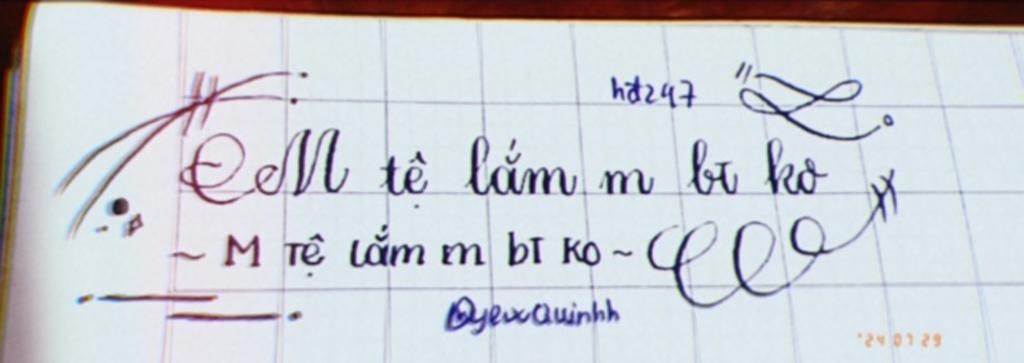 hđ247
M tệ lắm m bt ko
~ M tệ lắm m bt ko ~
'24 07 29